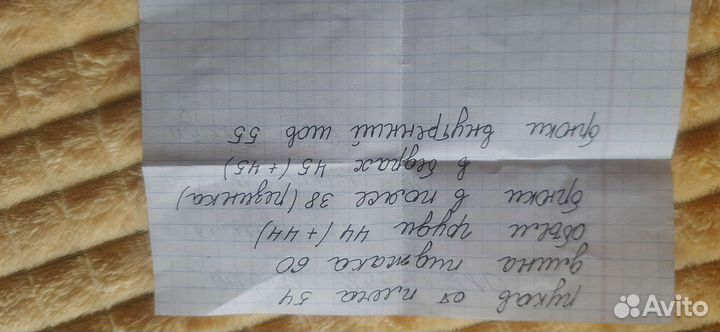 рукав от плеча 54
длина пиджака 60
объем груди 44 (+44)
брюки в поясе 38 (резинка)
в бедрах 45 (+45)
брюки внутренний шов 55
Avito